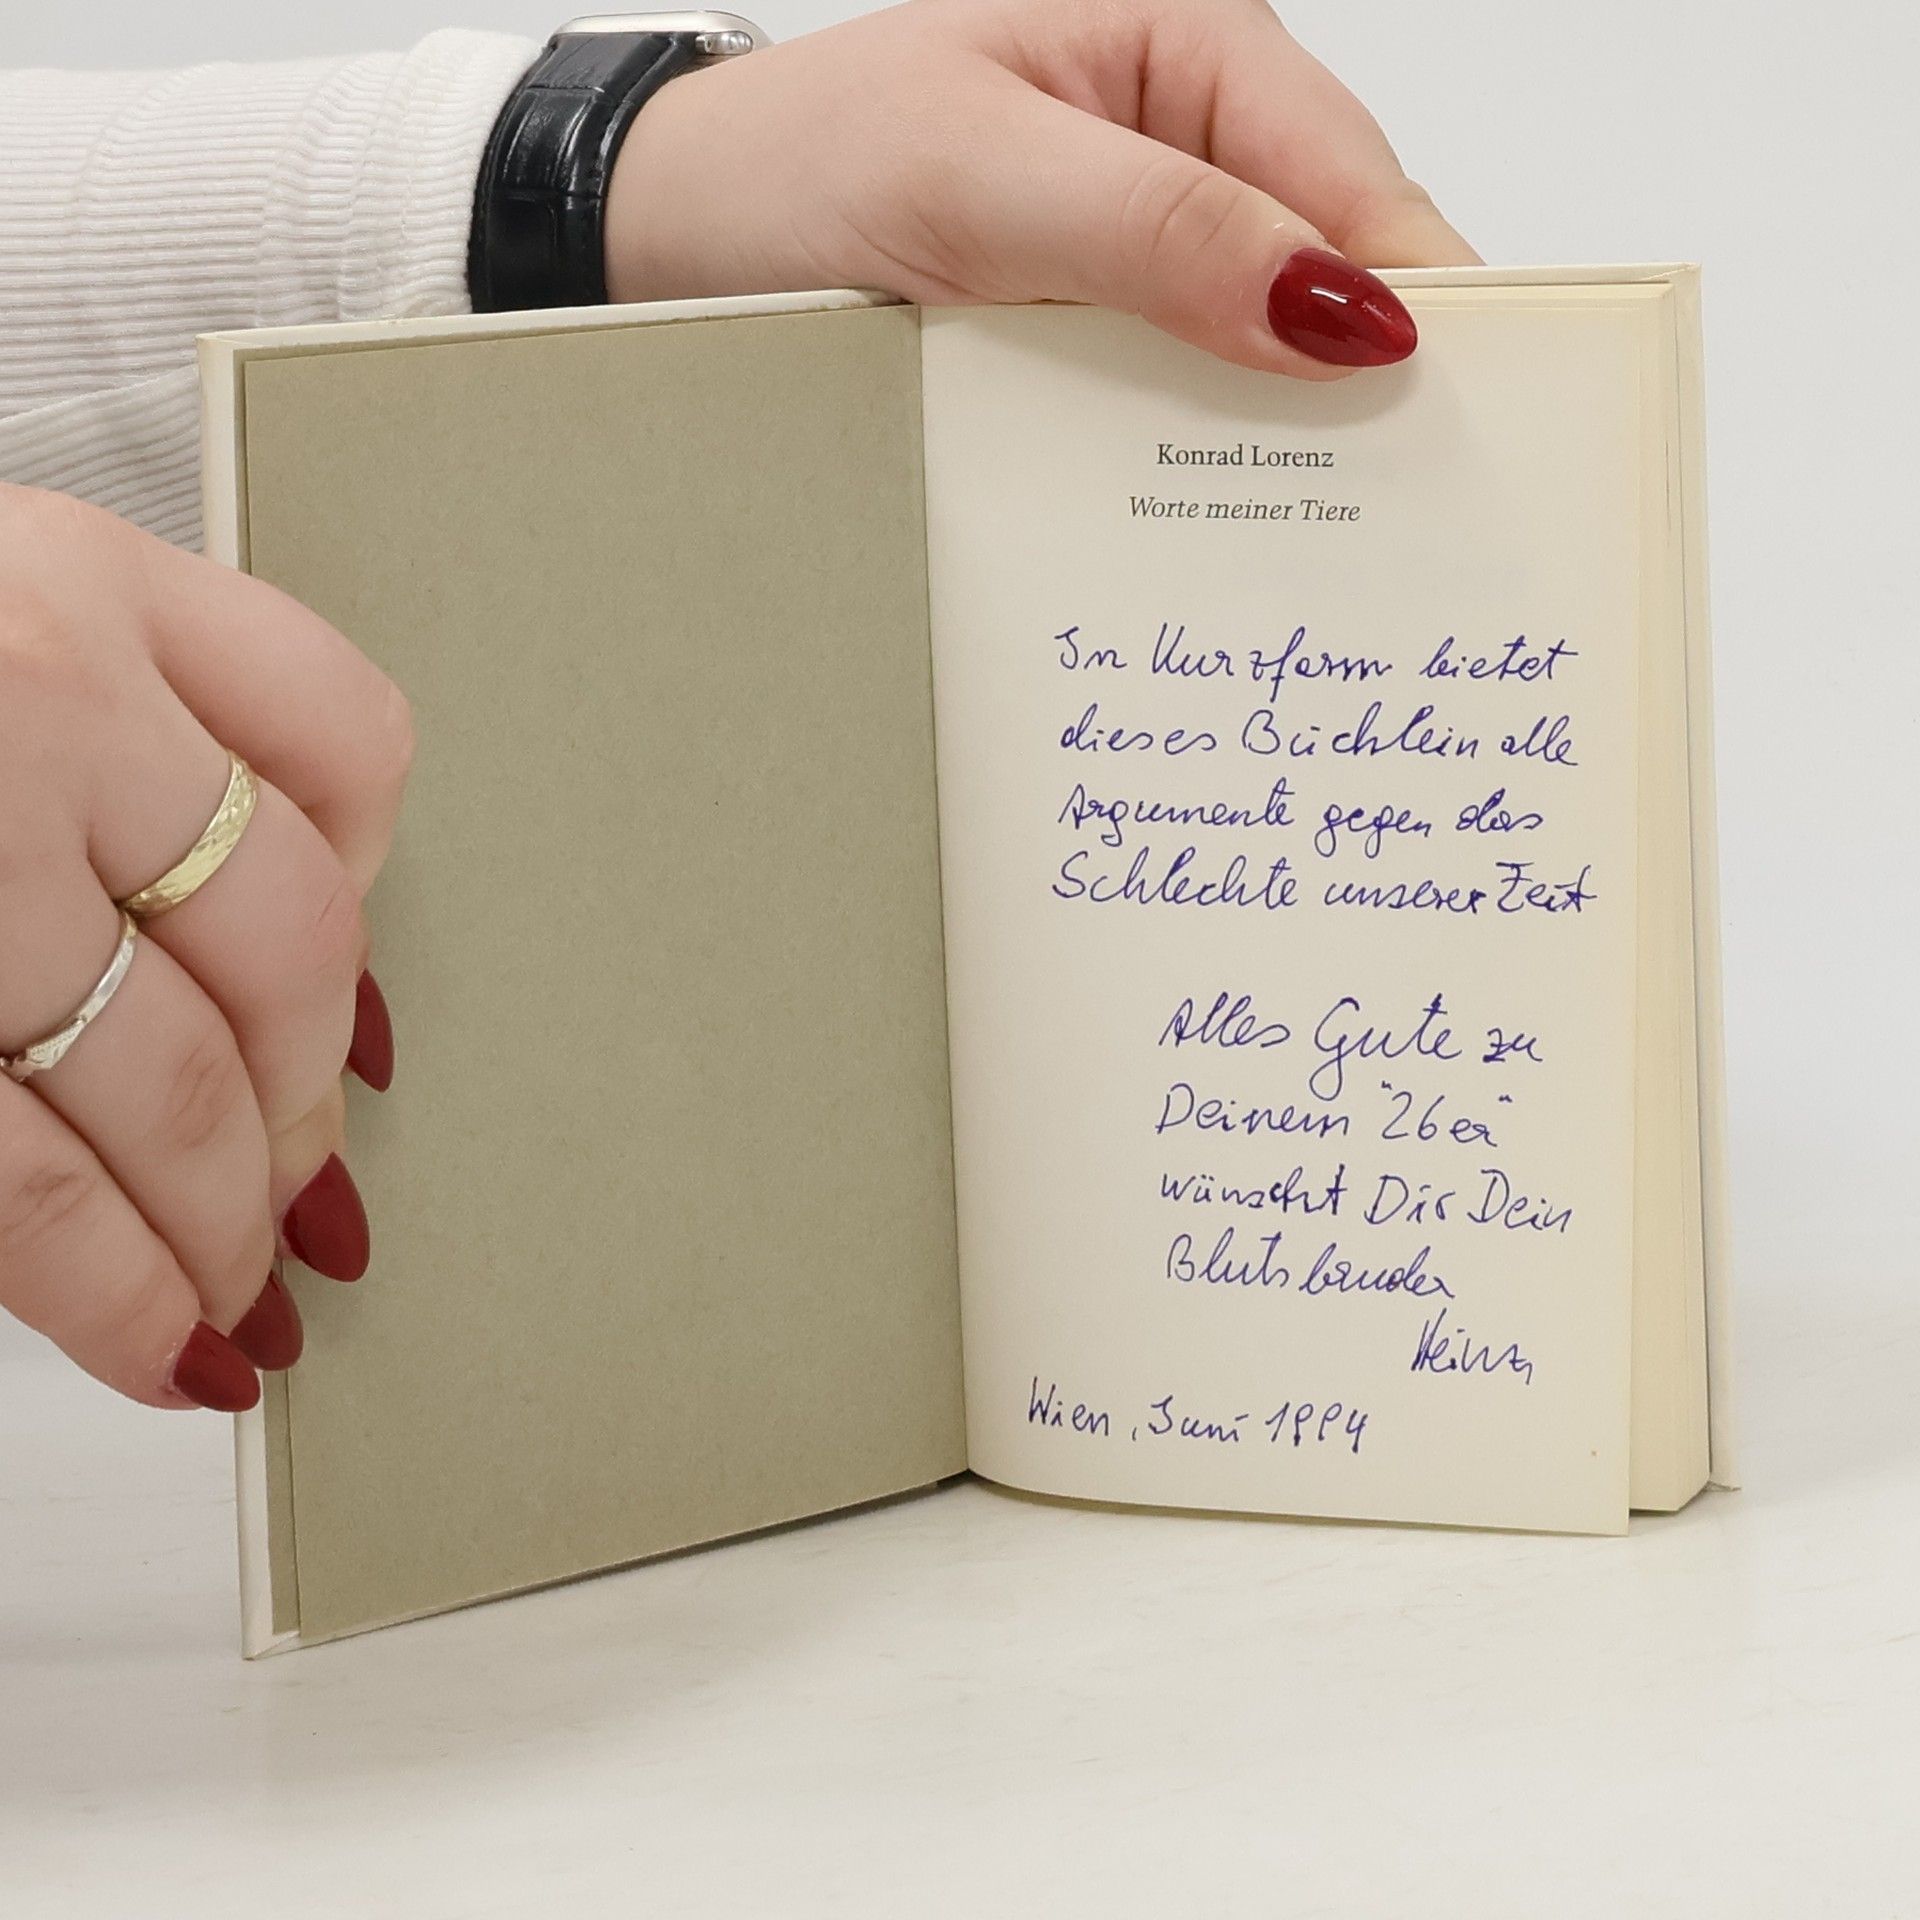 Konrad Lorenz
Worte meiner Tiere
In Kurzform bietet
dieses Büchlein alle
Argumente gegen das
Schlechte unserer Zeit
Alles Gute zu
Deinem "26er"
wünscht Dir Dein
Blutsbruder
Heinz
Wien, Juni 1994